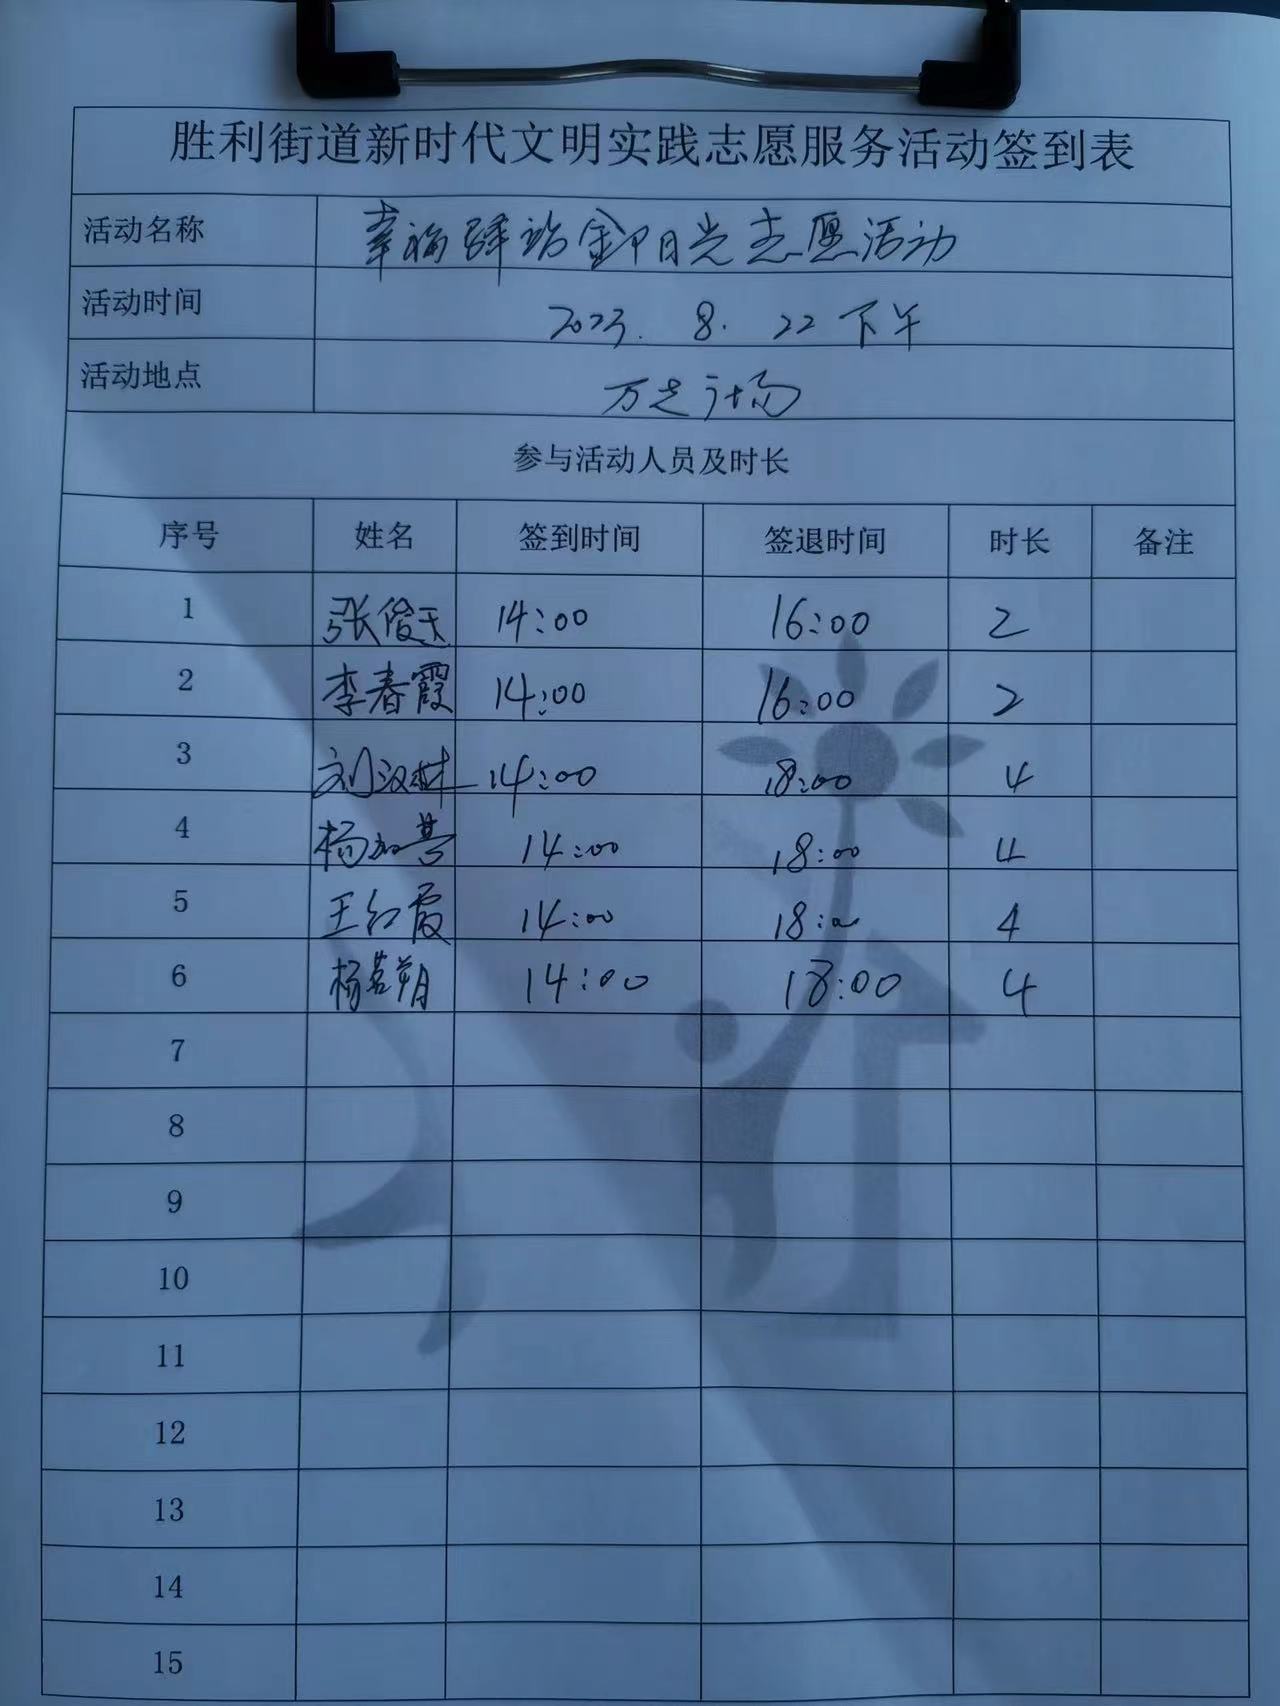 胜利街道新时代文明实践志愿服务活动签到表
活动名称 幸福驿站金阳光志愿活动
活动时间 2023. 8. 22 下午
活动地点 万达广场
参与活动人员及时长
序号 姓名 签到时间 签退时间 时长 备注
1 张俊天 14:00 16:00 2
2 李春霞 14:00 16:00 2
3 刘汉林 14:00 18:00 4
4 14:00 18:00 4
5 王红霞 14:00 18:00 4
6 杨若朔 14:00 18:00 4
7
8
9
10
11
12
13
14
15